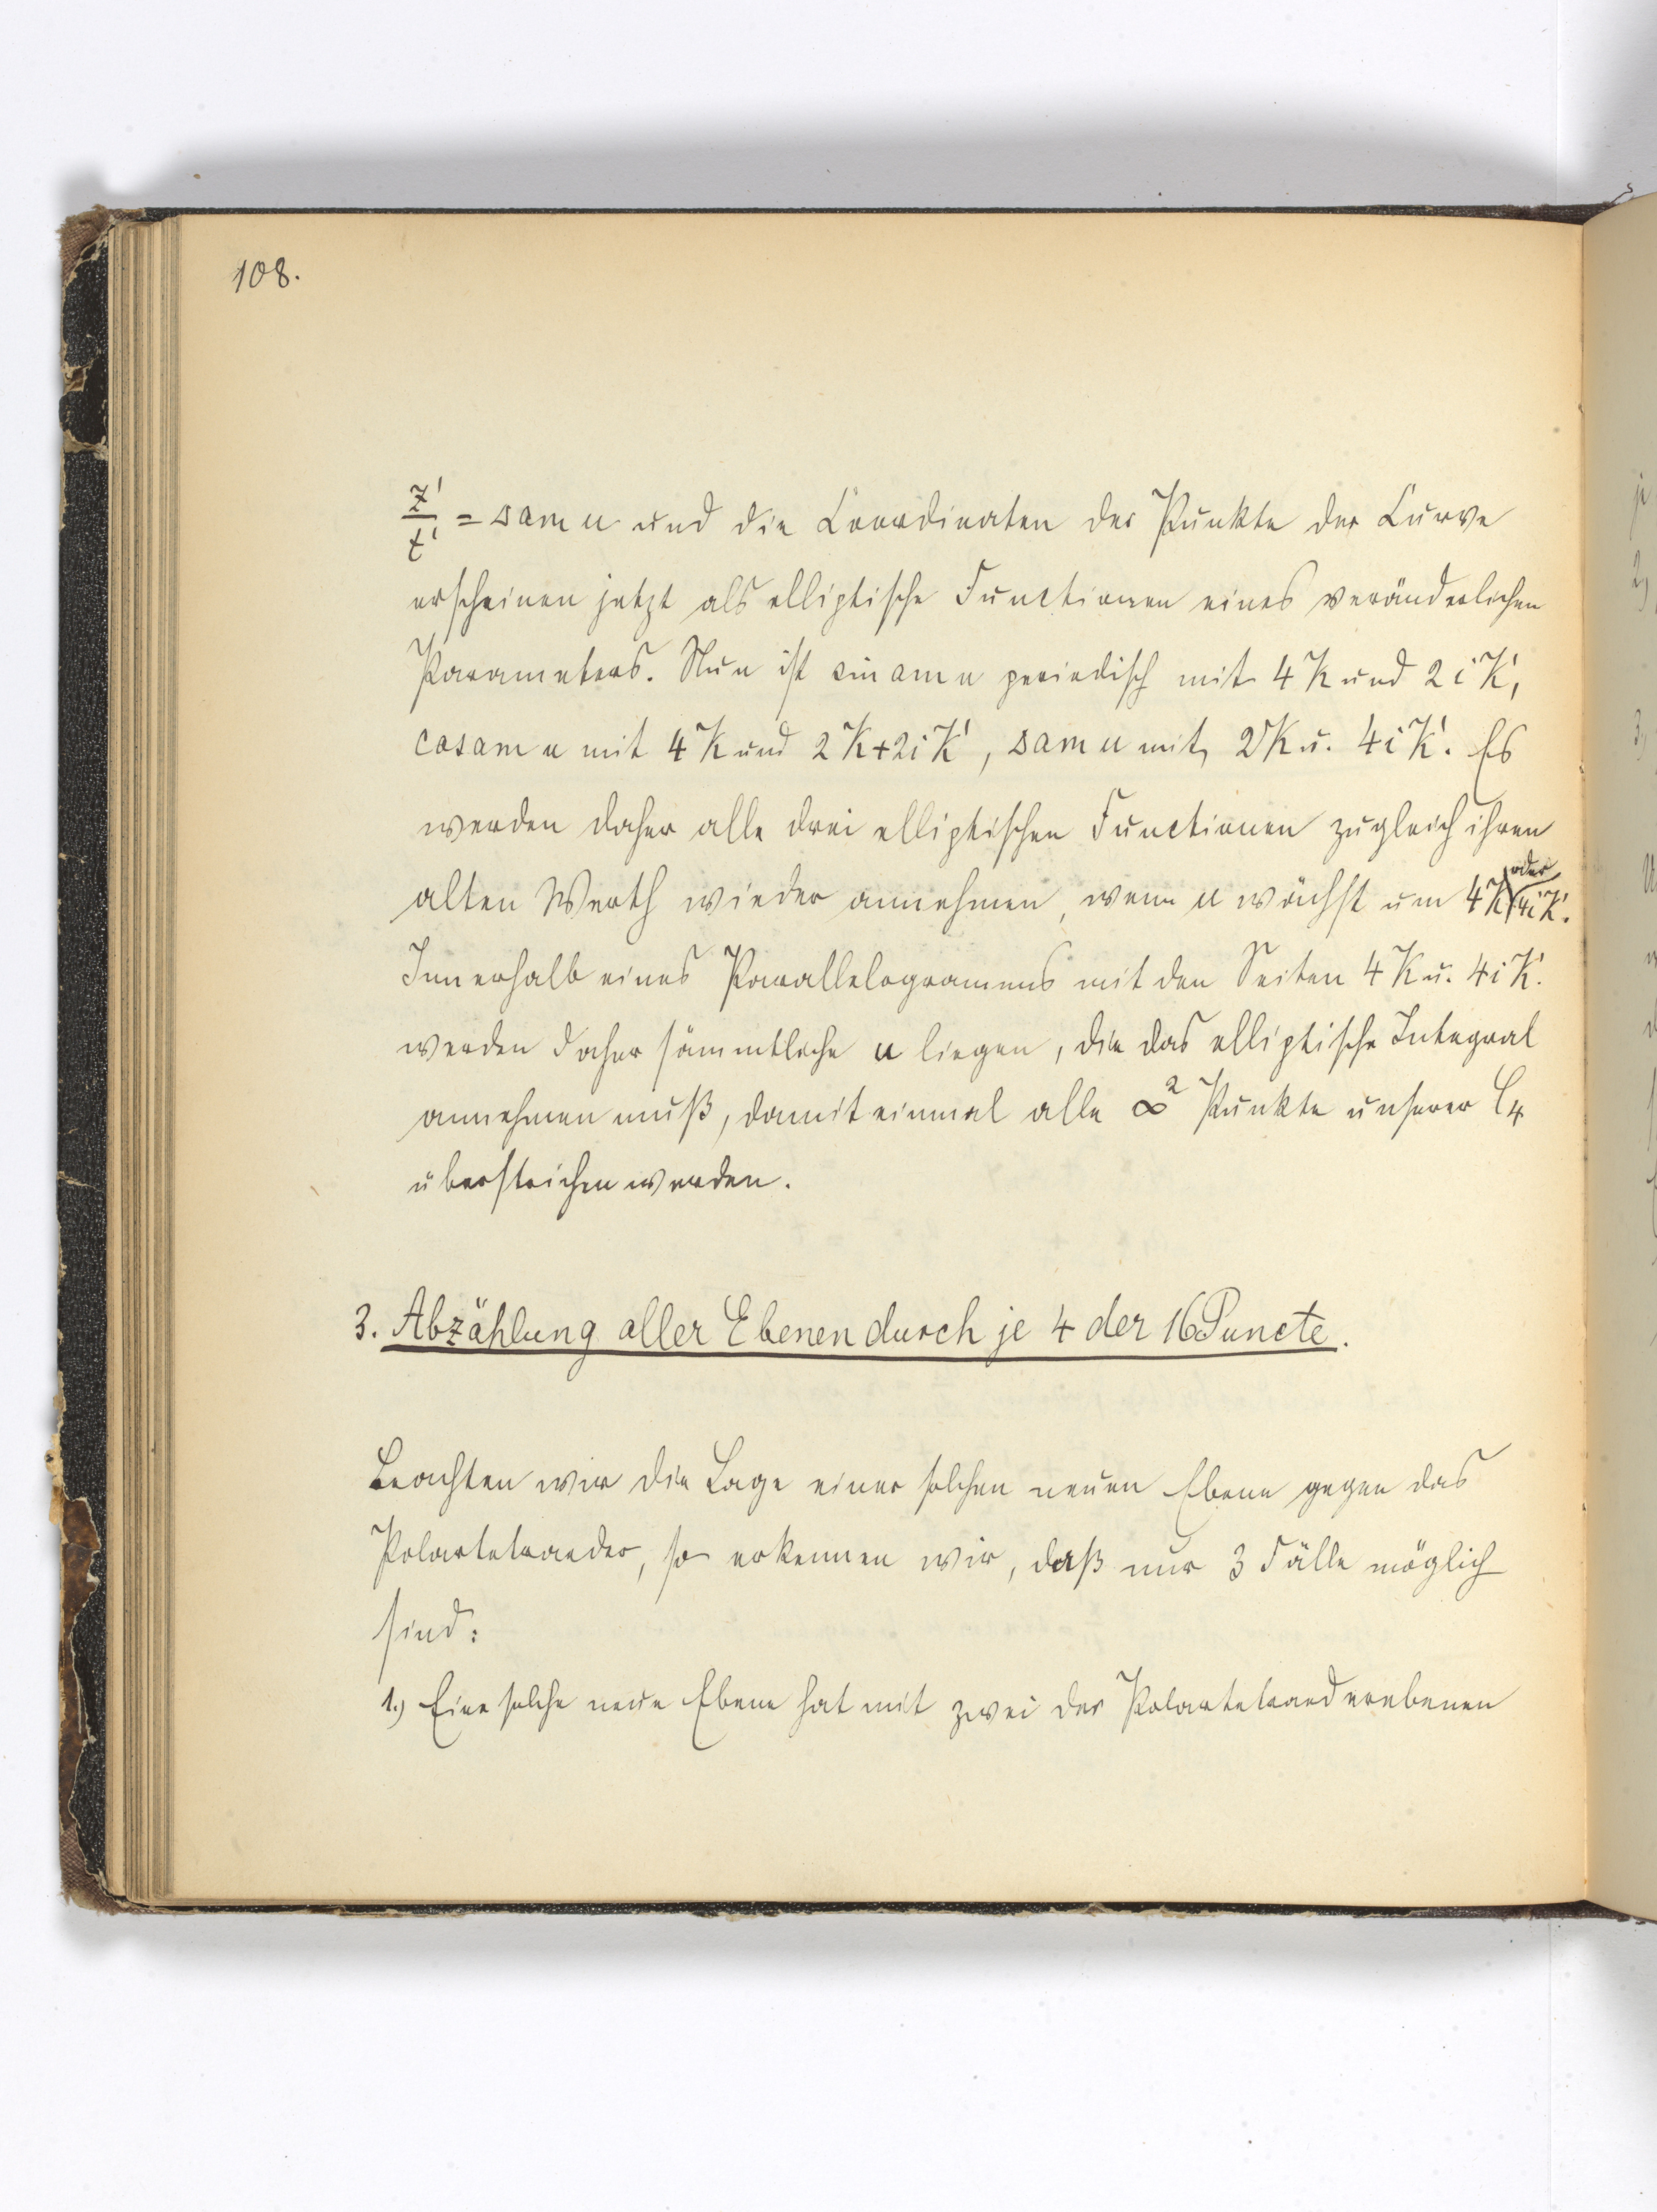 108.
z'/t' = Δ am u und die Coordinaten der Punkte der Curve
erscheinen jetzt als elliptische Functionen eines veränderlichen
Parameters. Nun ist sin am u periodisch mit 4K und 2iK',
cos am u mit 4K und 2K+2iK', Δ am u mit 2K u. 4iK'. Es
werden daher alle drei elliptischen Functionen zugleich ihren
alten Werth wieder annehmen, wenn u wächst um 4K oder 4iK'.
Innerhalb eines Parallelogramms mit den Seiten 4K u. 4iK'
werden daher sämmtliche u liegen, die das elliptische Integral
annehmen muß, damit einmal alle ∞² Punkte unserer C₄
überstrichen werden.
3. Abzählung aller Ebenen durch je 4 der 16 Puncte.
Beachten wir die Lage einer solchen neuen Ebene gegen das
Polartetraeder, so erkennen wir, daß nur 3 Fälle möglich
sind:
1.) Eine solche neue Ebene hat mit zwei der Polartetraederebenen